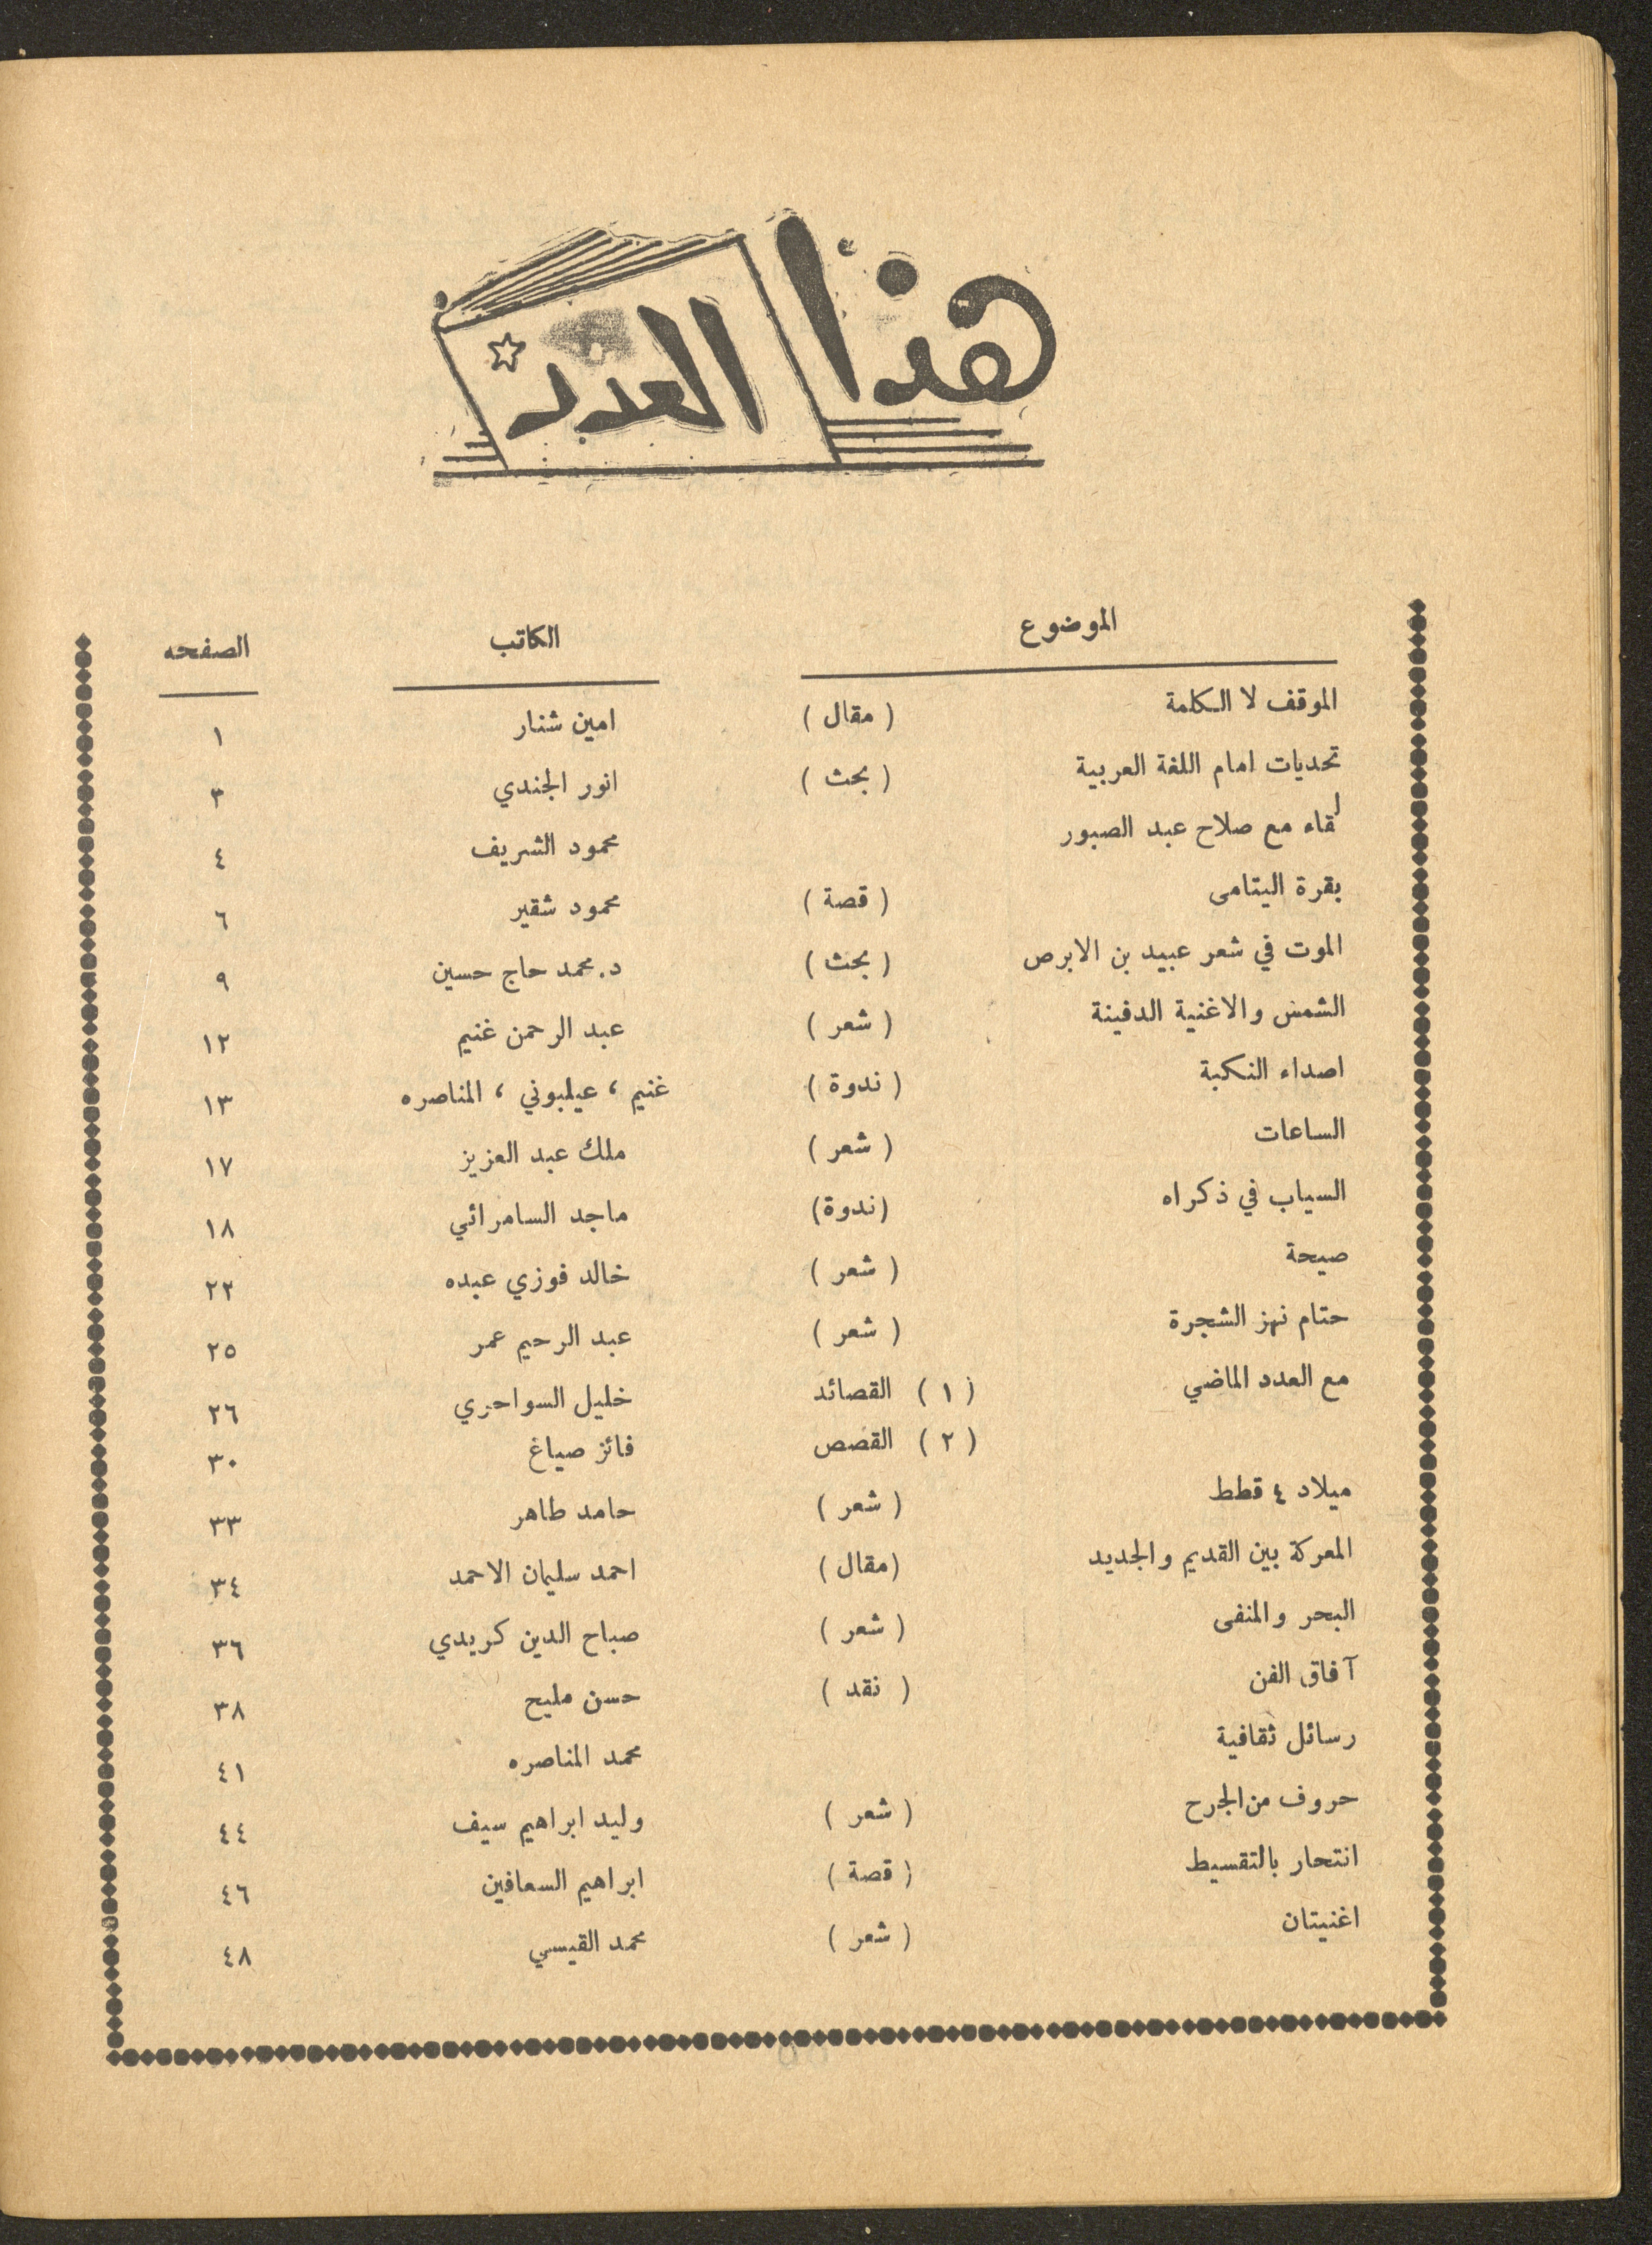 هذا العدد
الموضوع الكاتب الصفحه
الموقف لا الكلمة ( مقال ) امين شنار ١
تحديات امام اللغة العربية ( بحث ) انور الجندي ٣
لقاء مع صلاح عبد الصبور محمود الشريف ٤
بقرة اليتامى ( قصة ) محمود شقير ٦
الموت في شعر عبيد بن الابرص ( بحث ) د. محمد حاج حسين ٩
الشمس والاغنية الدفينة ( شعر ) عبد الرحمن غنيم ١٢
اصداء النكبة ( ندوة ) غنيم ، عيلبوني ، المناصره ١٣
الساعات ( شعر ) ملك عبد العزيز ١٧
السياب في ذكراه (ندوة) ماجد السامرائي ١٨
صيحة ( شعر ) خالد فوزي عبده ٢٢
حتام نهز الشجرة ( شعر ) عبد الرحيم عمر ٢٥
مع العدد الماضي ( ١ ) القصائد خليل السواحري ٢٦
( ٢ ) القصص فائز صياغ ٣٠
ميلاد ٤ قطط ( شعر ) حامد طاهر ٣٣
المعركة بين القديم والجديد (مقال ) احمد سليمان الاحمد ٣٤
البحر والمنفى ( شعر ) صباح الدين كريدي ٣٦
آفاق الفن ( نقد ) حسن مليح ٣٨
رسائل ثقافية محمد المناصره ٤١
حروف من الجرح ( شعر ) وليد ابراهيم سيف ٤٤
انتحار بالتقسيط ( قصة ) ابراهيم السعافين ٤٦
اغنيتان ( شعر ) محمد القيسي ٤٨